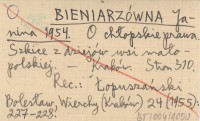 BIENIARZÓWNA Ja-
nina 1954. O chłopskie prawa.
Szkice z dziejów wsi mało-
polskiej. – Kraków. Stron 310.
Rec.: Łopuszański
Bolesław, Wierchy (Kraków) 24 (1955):
227-228.